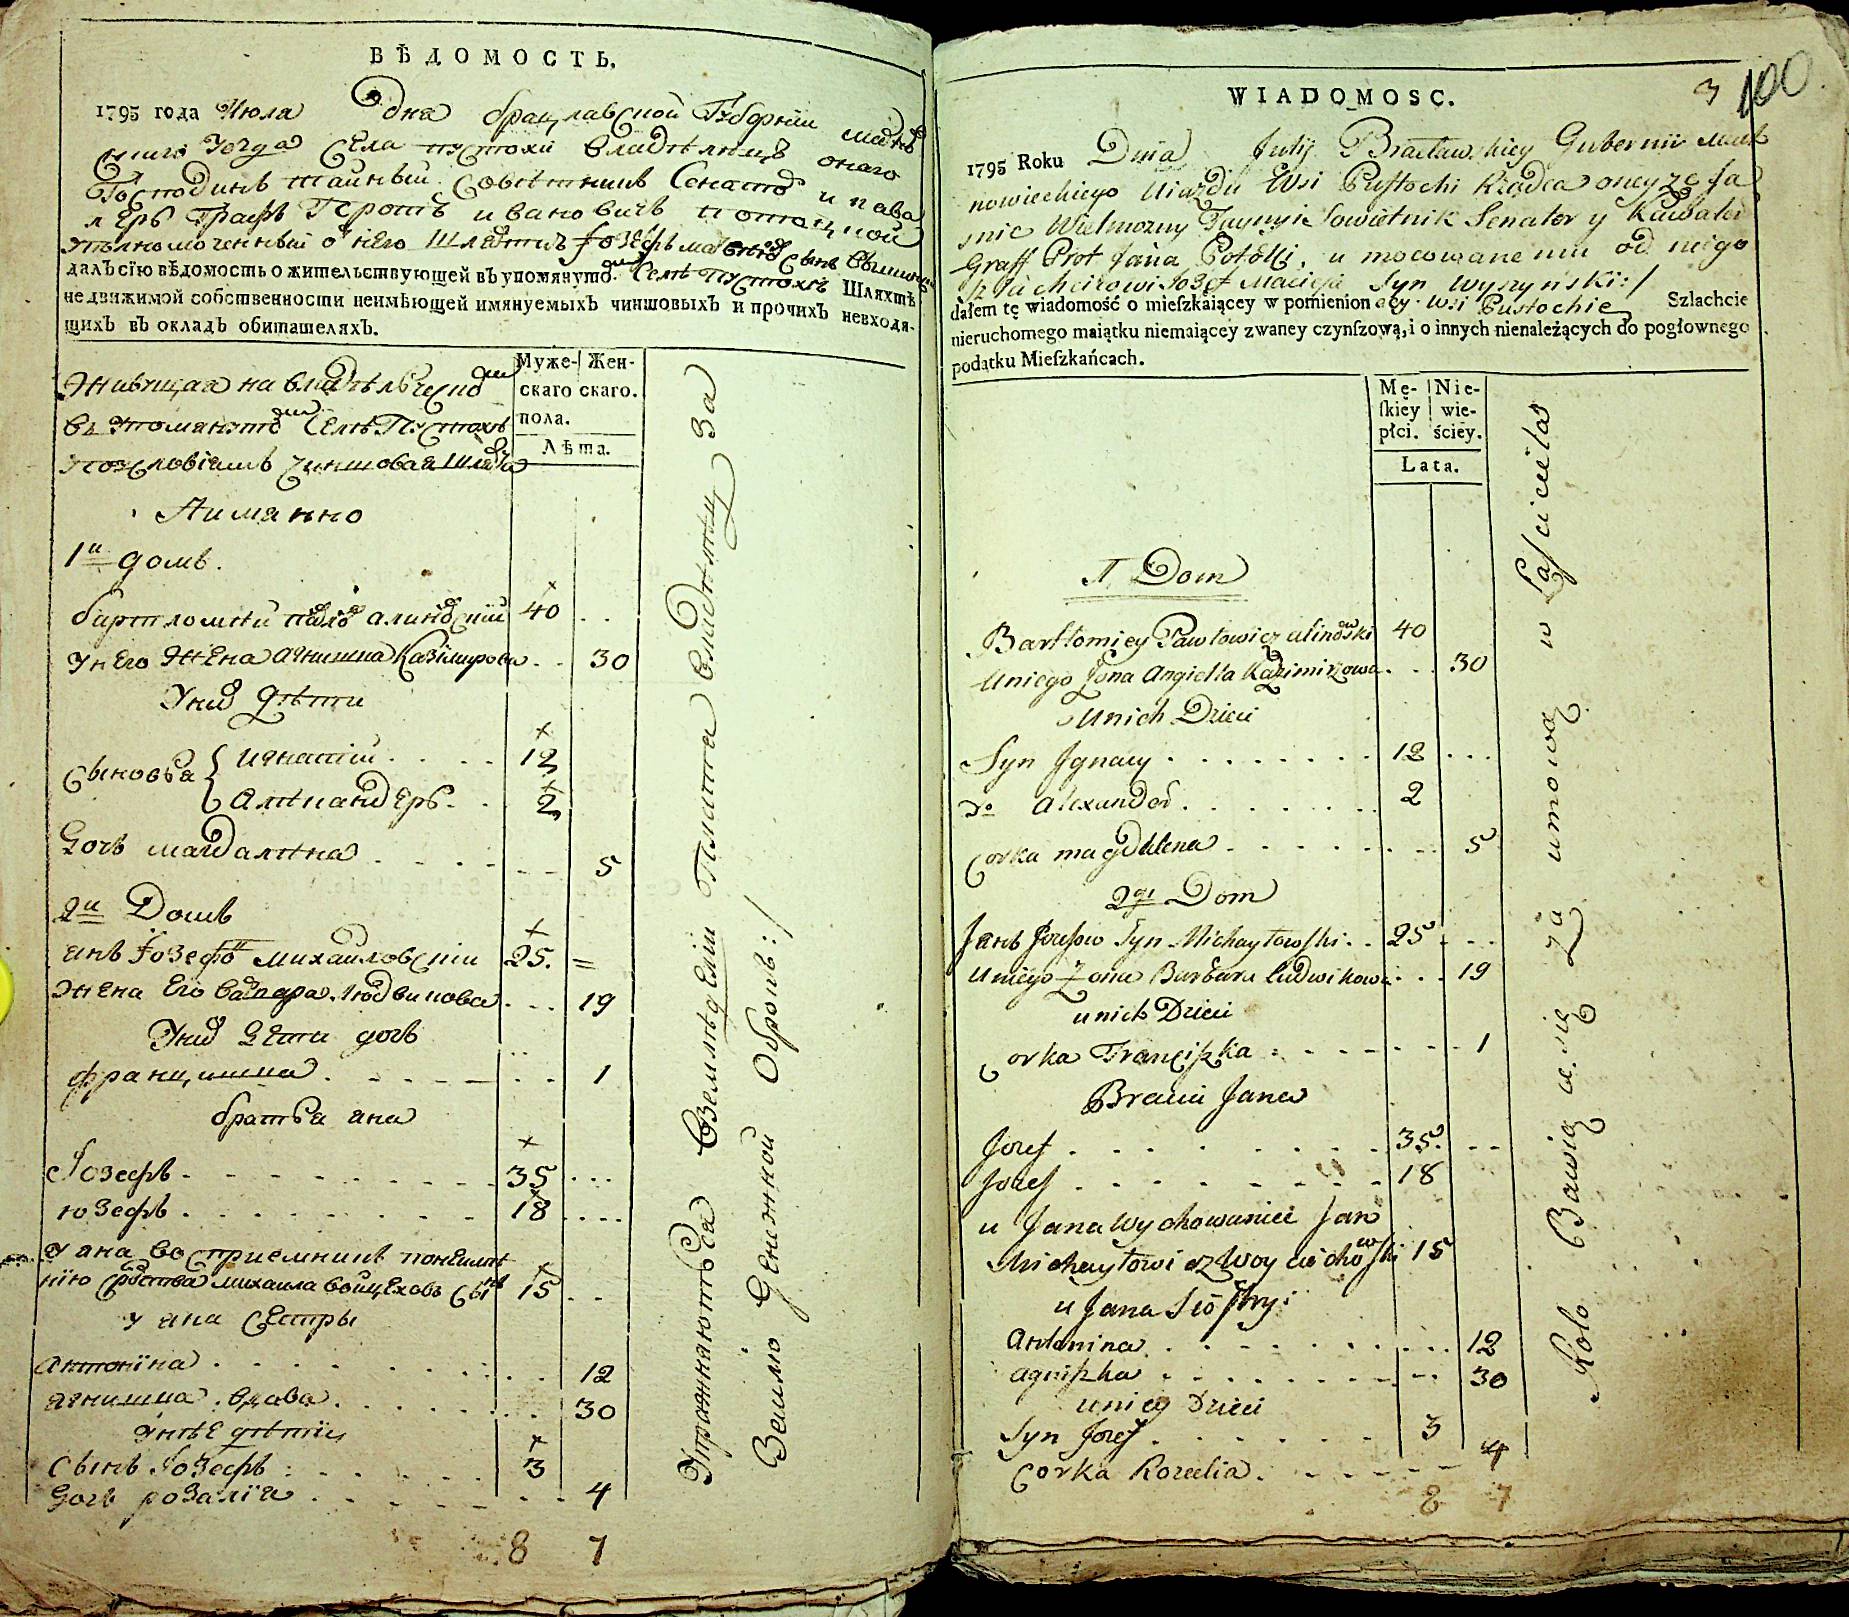 ВѢДОМОСТЬ.
1795 года Июля Дня брацлавской Губернии махнов
ского уезда села пустохи владѣлицъ онаго
Господинъ тайный Совѣтникъ Сенатор и кава
леръ графъ Протъ ивановичъ потоцкой
уполномоченный от него Шляхтичъ Іозефъ матвеев сынъ
далъ сію вѣдомость о жительствующей въ упомянутом селѣ пустохѣ Шляхтѣ
недвижимой собственности неимѣющей имянуемыхъ чиншовыхъ и прочихъ невходя-
щихъ въ окладъ обитателяхъ.
Муже- Жен-
скаго скаго.
пола.
Лѣта.
Живущая на владѣлческой
въ упомянутом Селѣ Пустохѣ
по условіямъ чиншовая шляхта
А имянно
1й домъ.
бартломѣй павлов алиновскій 40 . .
у него жена агнишка Казимирова . . 30
У них дѣти
Сыновья { игнатій . . . . 12
Алѣксандеръ . . 2
Дочъ магдалѣна . . . . . . 5
2й Домъ
янъ Іозефов михайловскій 25. =
жена его варвара людвикова . . . 19
У них дети дочъ
францишка . . . . . . . 1
братья яна
Іозефъ . . . . . . . . . 35 . . .
юзефъ . . . . . . . . . 18 . . . .
У яна восприемникъ понеимѣ
нію сродства михаила войцехов сынъ 15 . .
у яна сестры
антонина . . . . . . . . . 12
агнишка вдова . . . . . . . 30
у нѣе дѣти
сынъ Іозефъ : . . . . . 3
Дочъ розалія . . . . . . . . 4
8 7
Упражняютъся Землѣдѣліи Плата владѣлцу За
Землю Денежной Оброкъ :/
3 100
WIADOMOSC.
1795 Roku Dnia Julij Bracławskiey Gubernii Mach
nowieckiego Uiazdu Wsi Pustochi Rządca oney ze Ja
snie Wielmożny Taynyi Sowietnik Senator y Kawaler
Graff Prot Jana Potocki, u mocowane mu od niego
szlachcicowi Jozef Macieja Syn Wyszyński :/
dałem tę wiadomość o mieſzkaiącey w pomienion acy wsi Pustochie Szlachcie
nieruchomego maiątku niemaiącey zwaney czynſzową, i o innych nienależących do pogłownego
podątku Mieſzkańcach.
Mę- Nie-
ſkiey wie-
płci. ściey.
Lata.
1 Dom
Bartłomiey Pawłowicz alinowski 40
Uniego Żona Angiełła Kazimirzowa . . . 30
Unich Dzieci
Syn Jgnacy . . . . . . . . 12 . . .
do Alexander . . . . . . . 2
Corka magdalena . . . . . . . . 5
2gi Dom
Janb Jozefow Syn Michayłowski . . 25 . . .
Uniego Żona Barbara Ludwikowa . . . 19
unich Dzieci
Corka Franciszka : . . . . . . . 1
Bracia Jana
Jozef . . . . . . . . . 35. . .
Jozef . . . . . . . . . 18
u Jana wychowaniec Jan
Michayłowicz Woyciechowski 15
u Jana Siostry :
Antonina . . . . . . . . . . 12
agniszka . . . . . . . . . 30
uniey Dzieci
Syn Jozef . . . . . . . . 3
Corka Rozalia . . . . . . . 4
8 7
Rolo Bawią a. się Za umową w Łascicielas